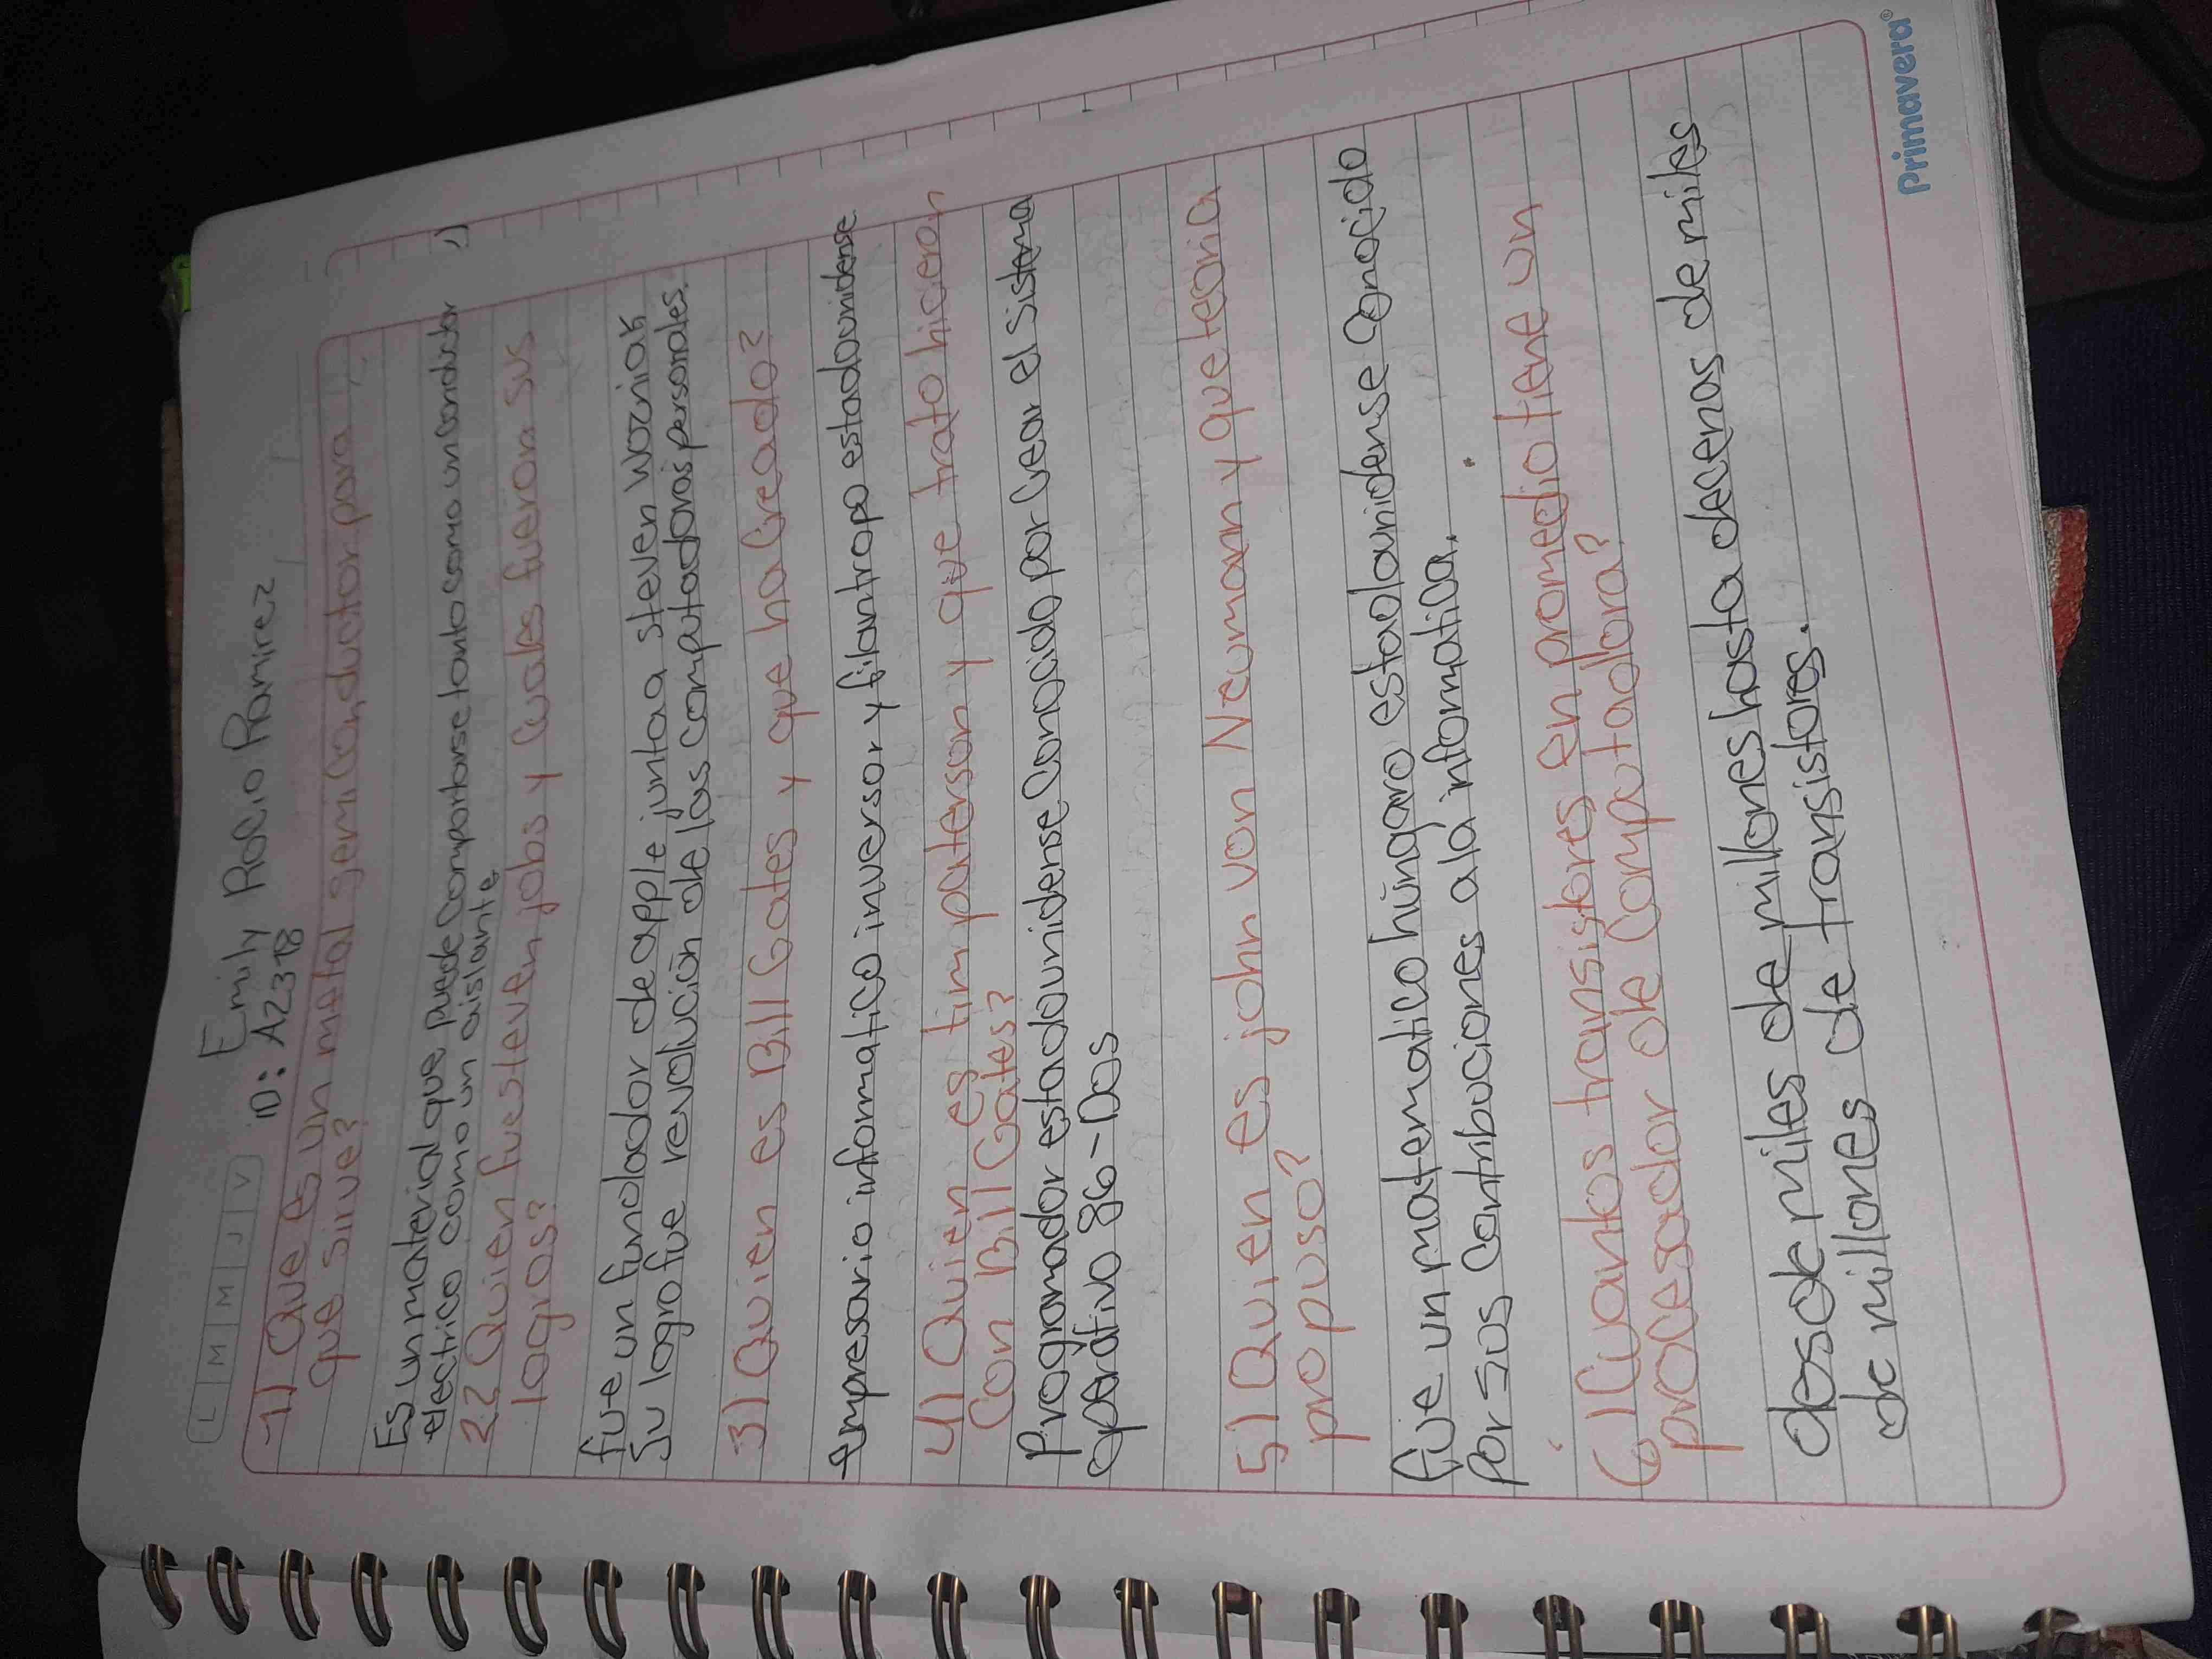 Emily Rocio Ramirez
L M M J V
ID: A2318
1) Que es un metal semiconductor para
que sirve?
Es un material que puede comportarse tanto como un conductor
electrico como un aislante
2¿ Quien fue steven jobs y cuales fueron sus
logros?
fue un fundador de apple junto a steven wozniak
Su logro fue revolución de las computadoras personales.
3) Quien es Bill Gates y que ha creado?
empresario informatico inversor y filantropo estadounidense.
4) Quien es tim paterson y que trato hicieron
Con Bill Gates?
Programador estadounidense conocido por crear el sistema
operativo 86-Dos
5) Quien es john von Neumann y que teoria
propuso?
fue un matematico húngaro estadounidense conocido
por sus contribuciones a la informatica.
6) Cuantos transistores en promedio tiene un
procesador de computadora?
desde miles de millones hasta decenas de miles
de millones de transistores.
Primavera®